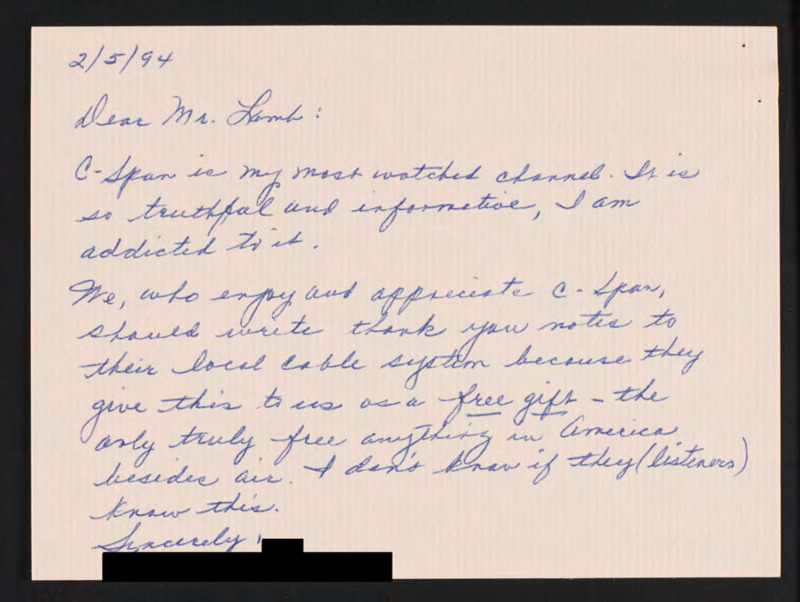 2/5/94
Dear Mr. Lamb:
C-Span is my most watched channel. It is
so truthful and informative, I am
addicted to it.
We, who enjoy and appreciate C-Span,
should write thank you notes to
their local cable system because they
give this to us as a free gift - the
only truly free anything in America
besides air. I don't know if they (listeners)
know this.
Sincerely,